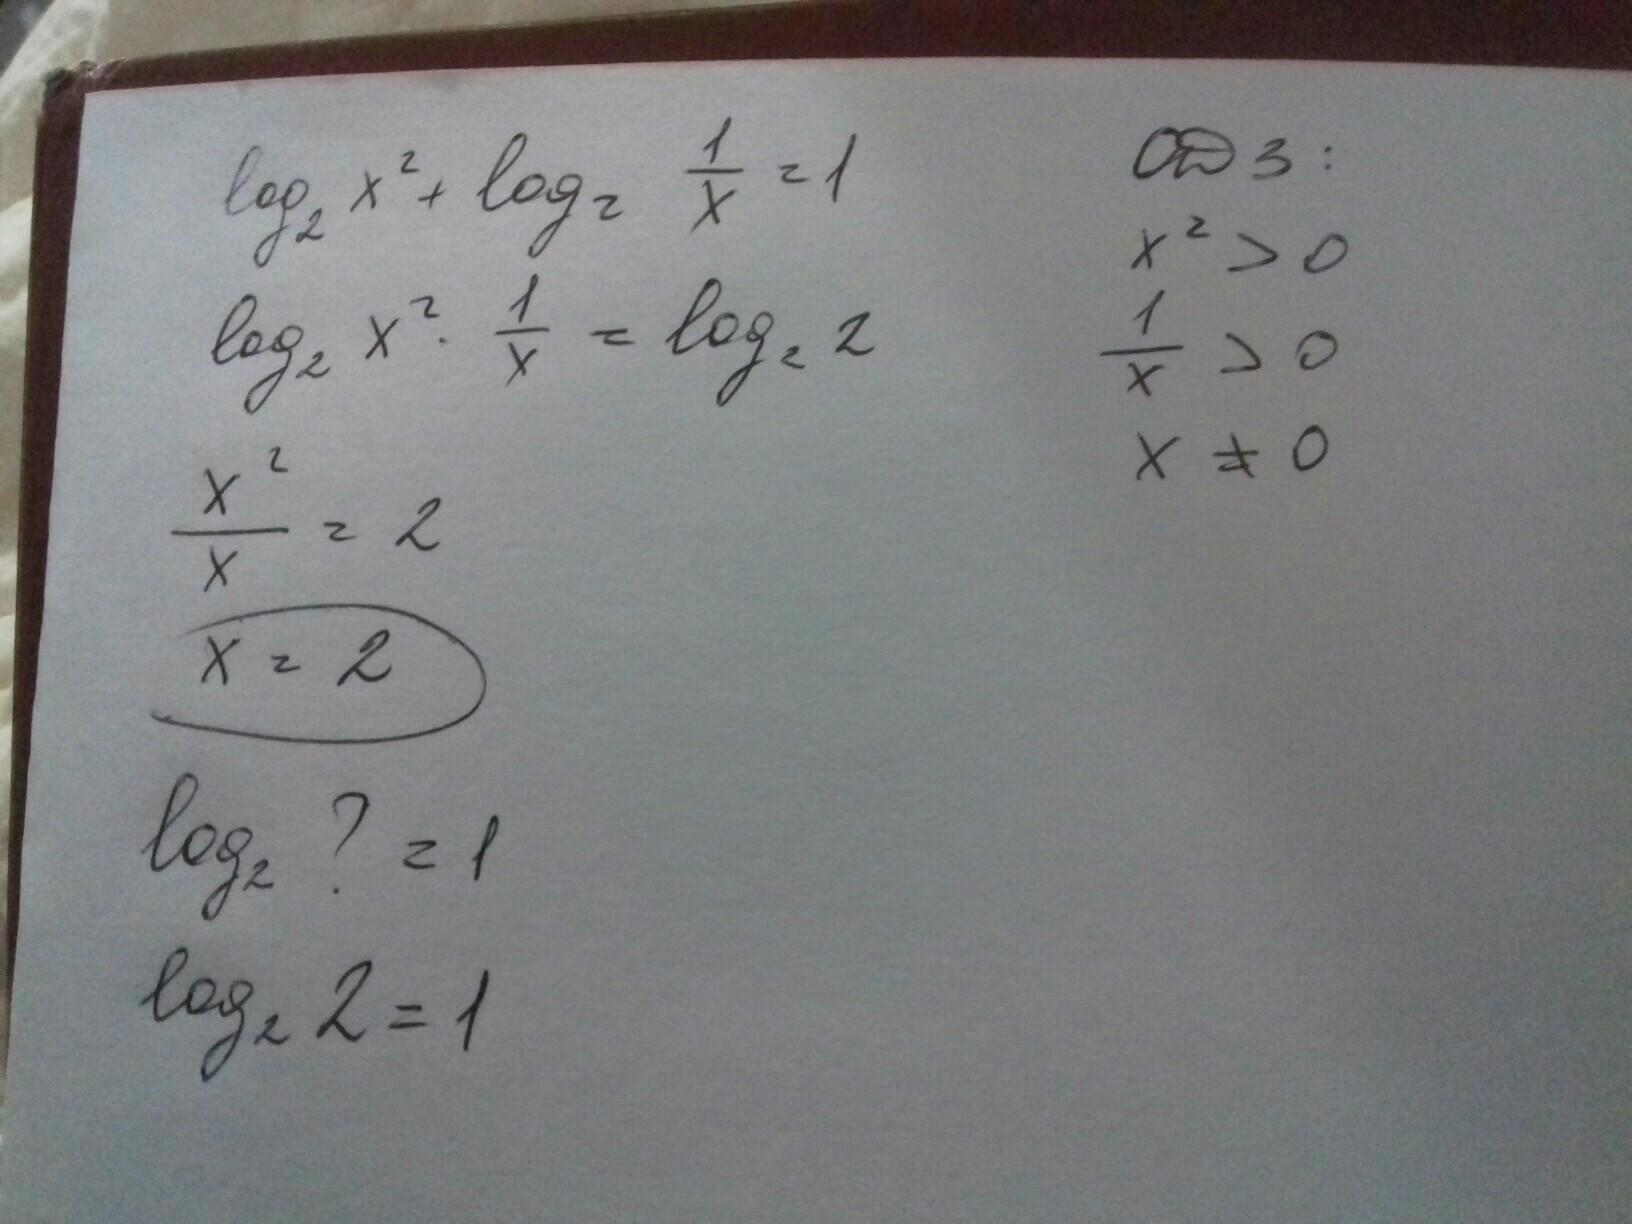 log₂ x² + log₂ 1/x = 1
log₂ x² · 1/x = log₂ 2
x²/x = 2
x = 2
log₂ ? = 1
log₂ 2 = 1
ОДЗ:
x² > 0
1/x > 0
x ≠ 0